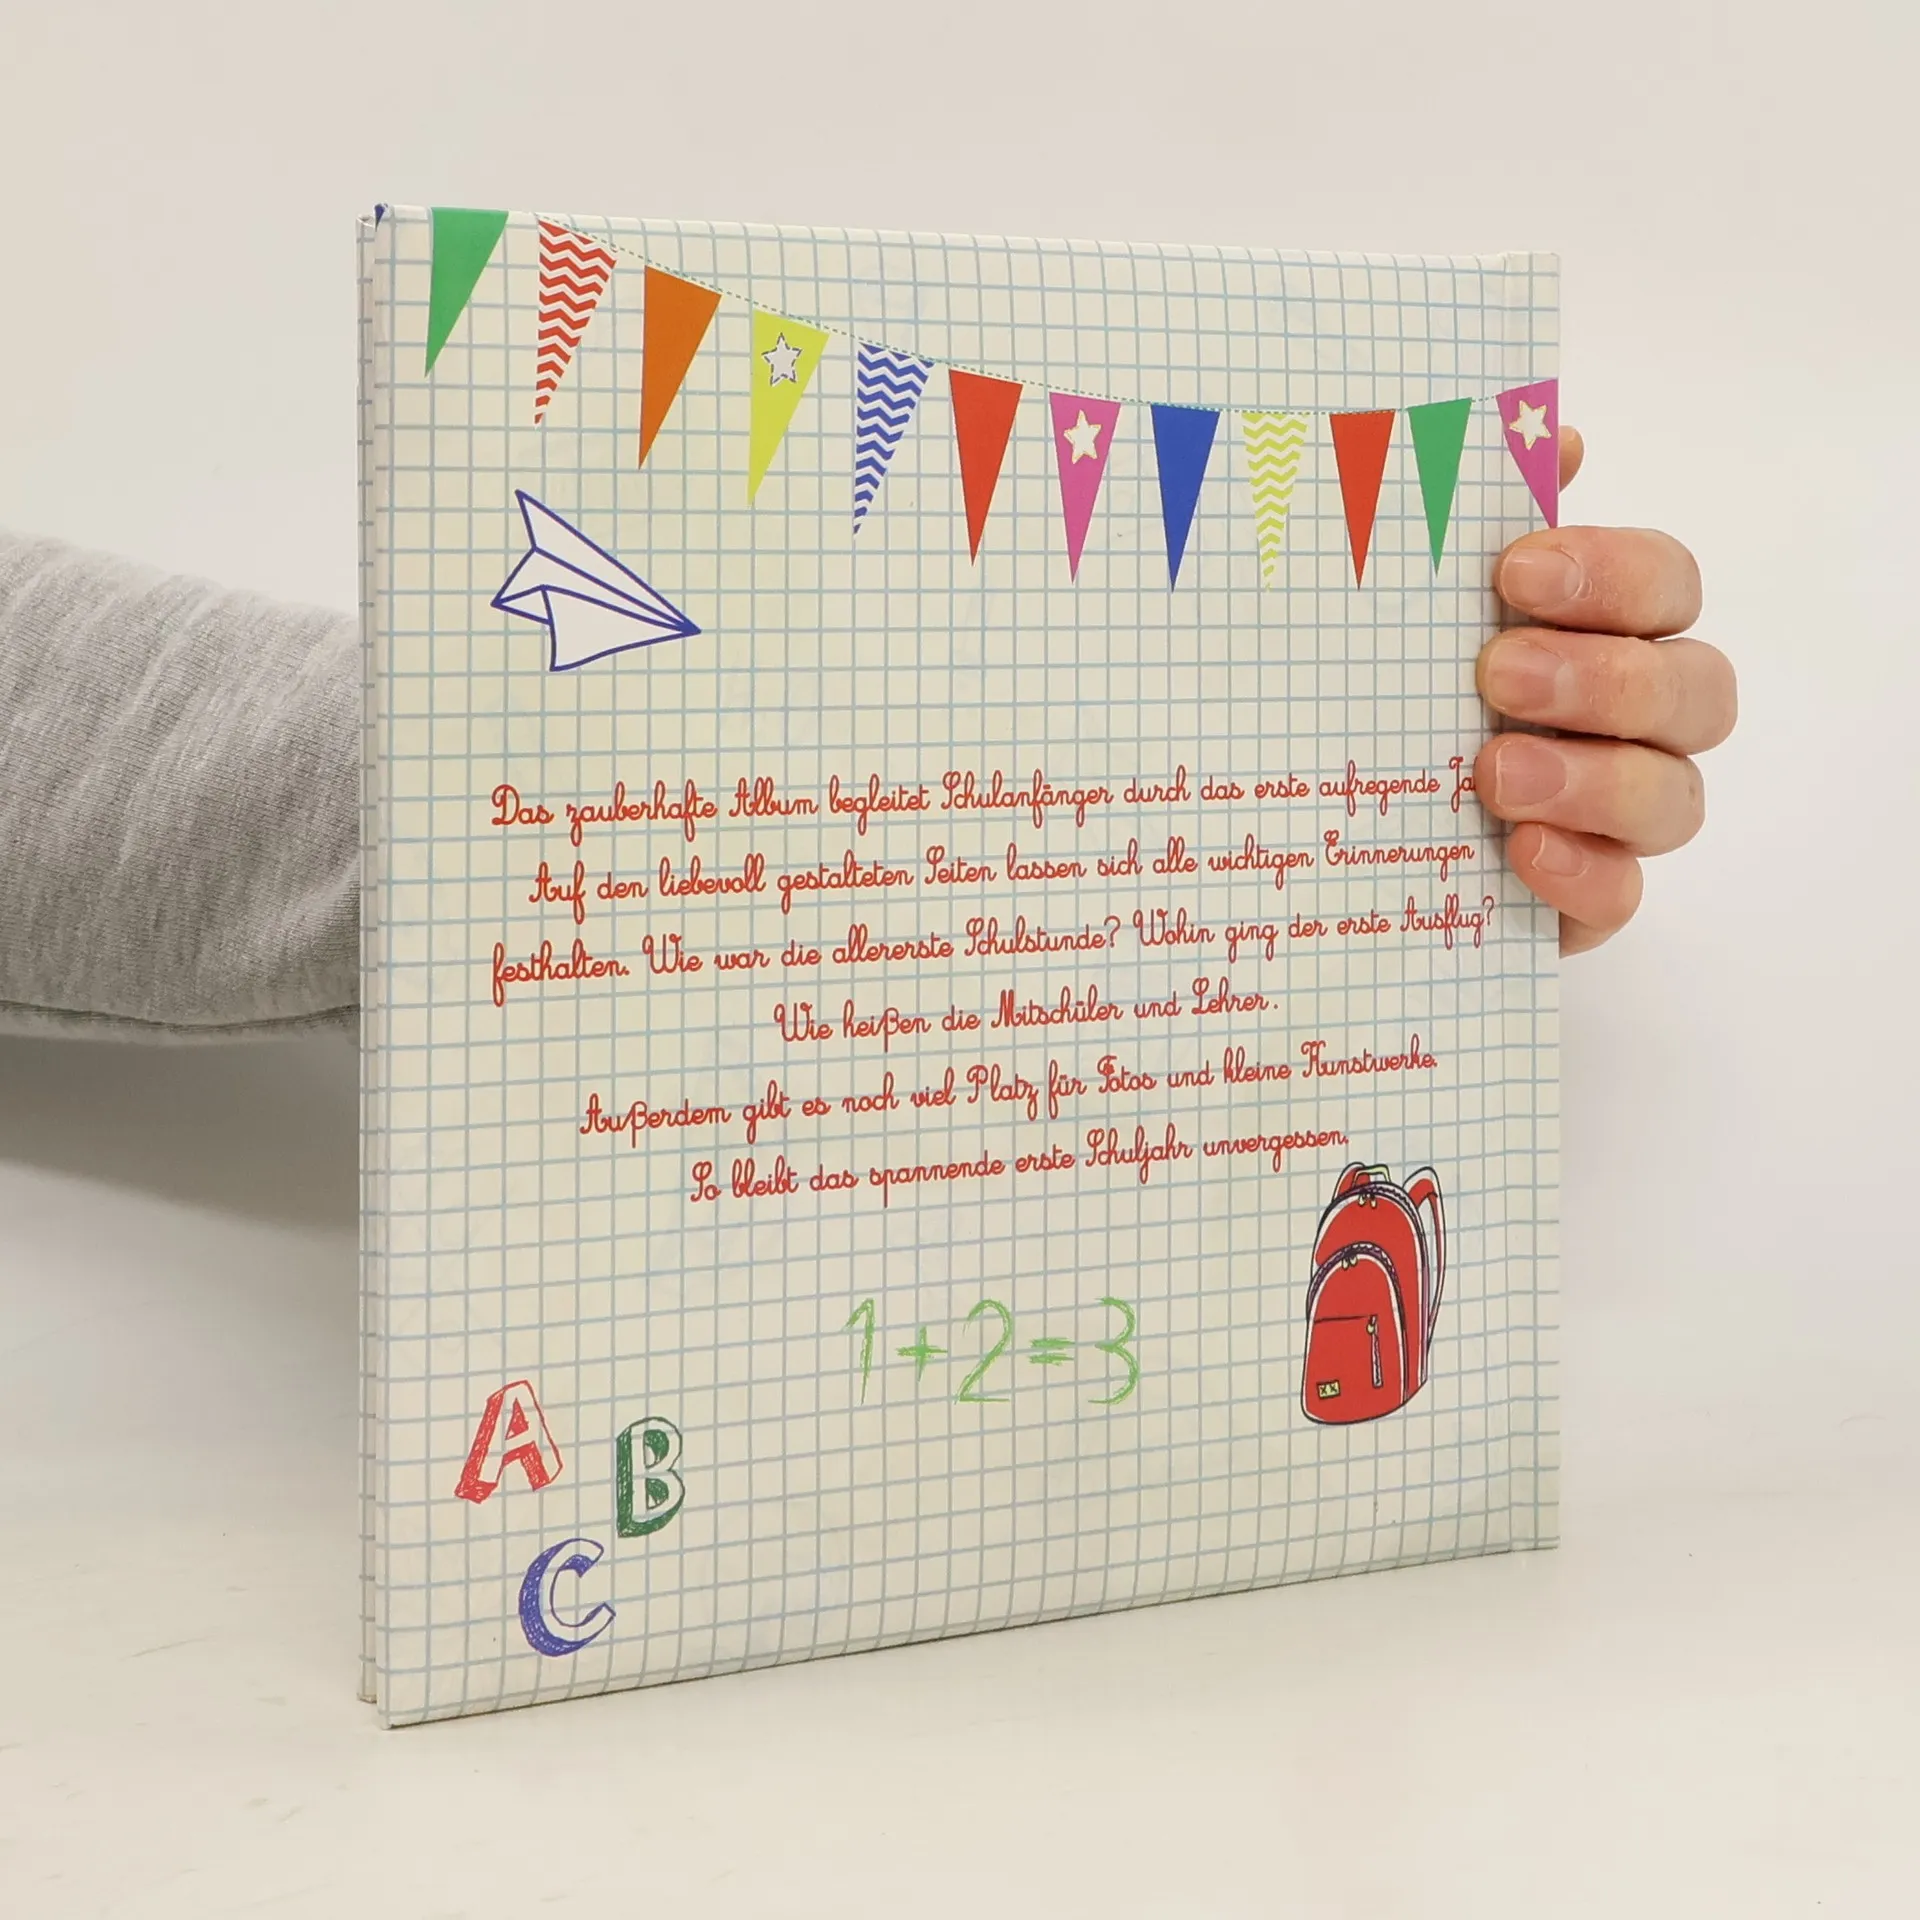 Das zauberhafte Album begleitet Schulanfänger durch das erste aufregende
Auf den liebevoll gestalteten Seiten lassen sich alle wichtigen Erinnerungen
festhalten. Wie war die allererste Schulstunde? Wohin ging der erste Ausflug?
Wie heißen die Mitschüler und Lehrer.
Außerdem gibt es noch viel Platz für Fotos und kleine Kunstwerke.
So bleibt das spannende erste Schuljahr unvergessen.
1+2=3
A
B
C